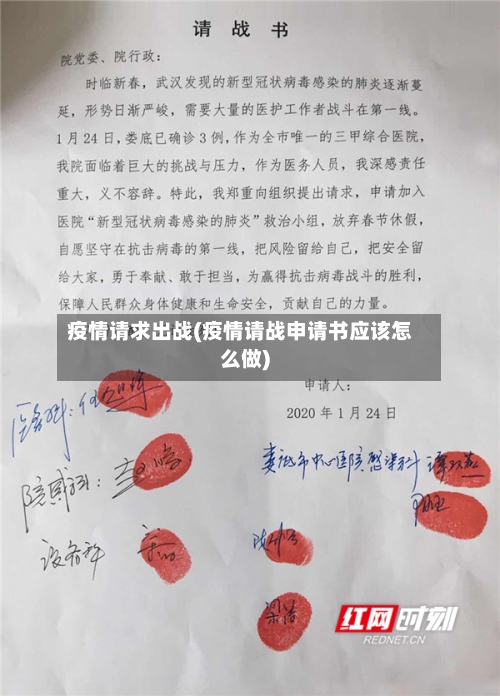 请 战 书
院党委、院行政：
时临新春，武汉发现的新型冠状病毒感染的肺炎逐渐蔓
延，形势日渐严峻，需要大量的医护工作者战斗在第一线。
1月24日，娄底已确诊3例，作为全市唯一的三甲综合医院，
我院面临着巨大的挑战与压力，作为医务人员，我深感责任
重大，义不容辞。特此，我郑重向组织提出请求，申请加入
医院“新型冠状病毒感染的肺炎”救治小组，放弃春节休假，
自愿坚守在抗击病毒的第一线，把风险留给自己，把安全留
给大家，勇于奉献、敢于担当，为赢得抗击病毒战斗的胜利，
保障人民群众身体健康和生命安全，贡献自己的力量。
疫情请求出战(疫情请战申请书应该怎
么做)
申请人：
2020年1月24日
医务科：
娄底市中心医院感染科
院感科：
设备科
梁清
红网时刻
REDNET.CN